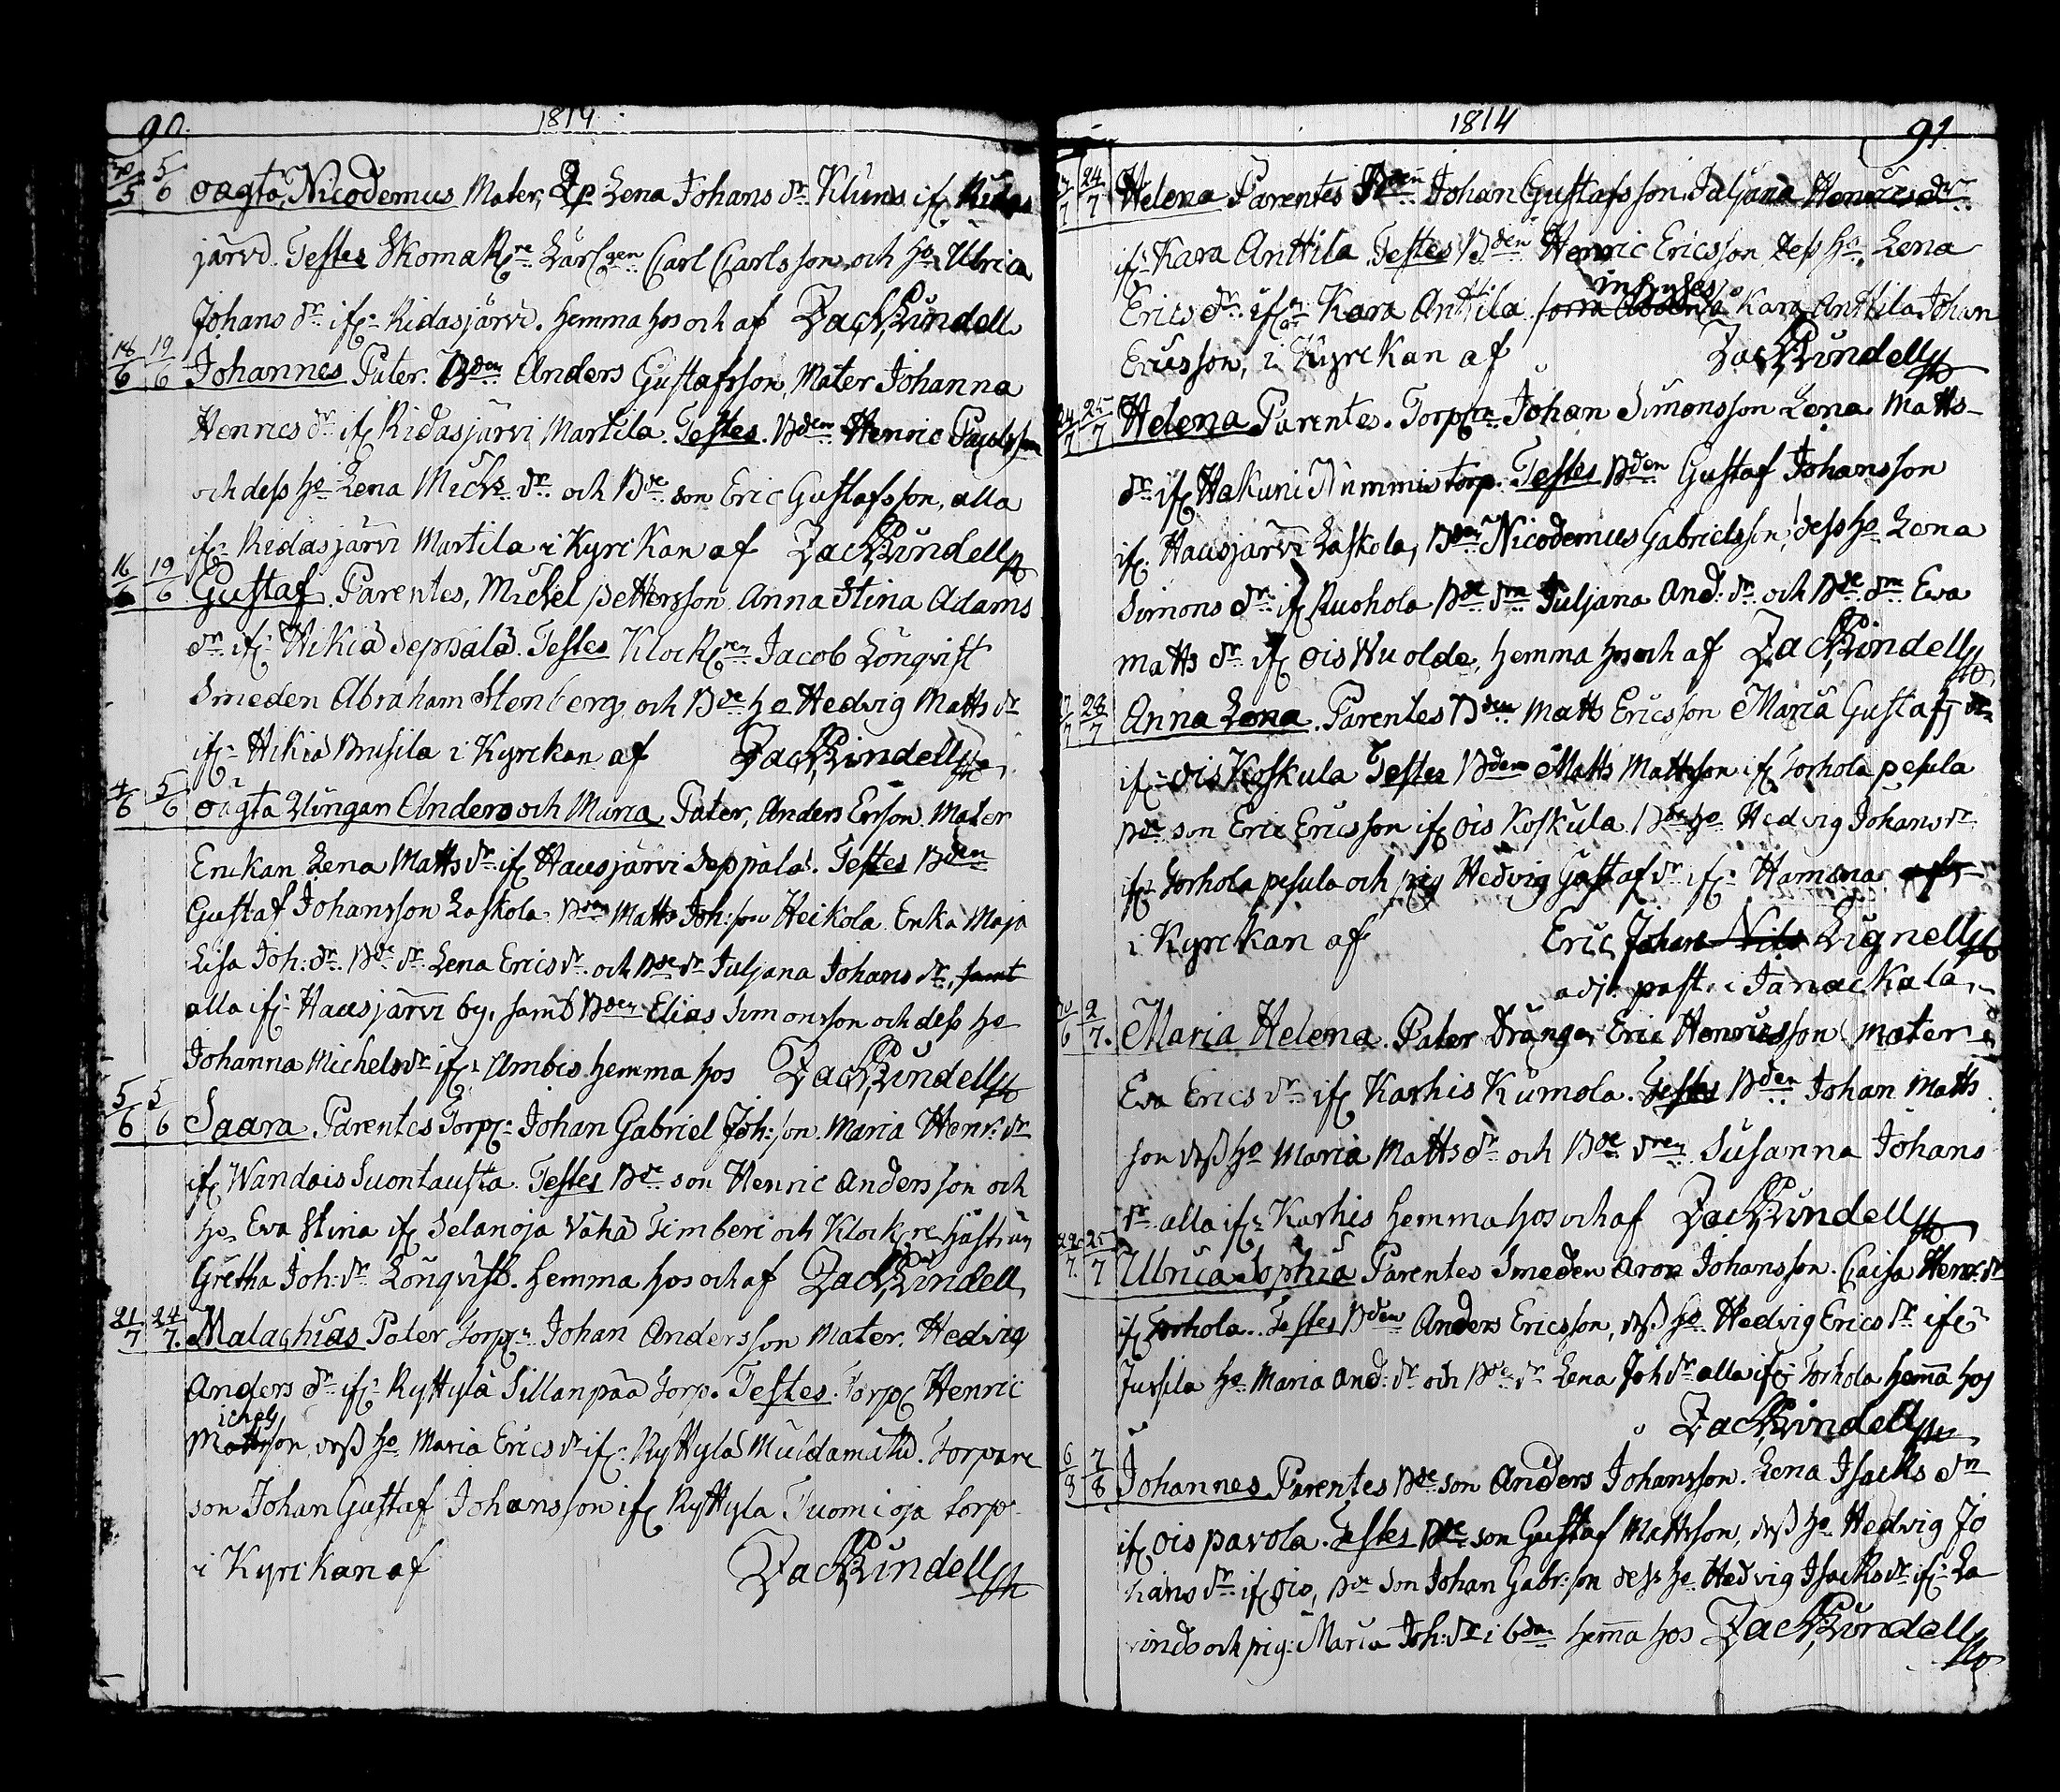 90. 1814
30/5 5/6 oägta, Nicodemus Mater, Lena Johans dr Kluns if: Ridas
järvi. Testes SkomakRre Lärlgen Carl Carlsson och ho Ulrica
Johans dr if: Ridasjärvi. hemma hos och af Zach. Lindell
18/6 19/6 Johannes Pater. Bden Anders Gustafsson, Mater Johanna
Henrics dr if: Ridasjärvi Martila. Testes. Bden Henric Paulsson
och dess ho Lena Michs dr och Bde son Eric Gustafsson, alla
if: Ridasjärvi Martila i Kyrckan af Zach. Lindell
16/6 19/6 Gustaf. Parentes, Michel Pettersson Anna Stina Adams
dr if: Hikiä Seppälä. Testes KlockRen Jacob Lönqvist
Smeden Abraham Stenberg och Bde ho Hedvig Matts dr
if: Hikiä Brusila i Kyrckan af Zach. Lindell
4/6 5/6 oägta Ungar Anders och Maria Pater, Anders Ersson Mater
Enckan Lena Matts dr if: Hausjärvi Seppälä. Testes Bden
Gustaf Johansson Laskola Bden Matts Joh:son Heikola Enka Maja
Lisa Joh: dr Bde dr Lena Erics dr och Bde dr Juljana Johans dr, samt
alla if: Hausjärvi by, samt Bden Elias Simonsson och dess ho
Johanna Michels dr if: Ambis hemma hos Zach. Lindell
5/6 5/6 Saara. Parentes Torp: Johan Gabriel Joh: son Maria Henr: dr
if: Wandais Suontausta. Testes Bde son Henric Andersson och
ho Eva Stina if: Selänoja Vähä Timberi och Klockre Hustrun
Gretha Joh: dr Lönqvist. hemma hos och af Zach. Lindell
21/7 24/7. Malachias Pater Torp: Johan Andersson Mater. Hedvig
Anders dr if: Ryttylä Sillanpää Torp. Testes. Torp: Henric
ichels
Mattsson, dess ho Maria Erics dr if: Ryttylä Torpare
son Johan Gustaf Johansson if: Ryttyla Tuomioja torp
i Kyrckan af Zach. Lindell
1814 91.
17/7 24/7 Helena Parentes Bden Johan Gustafsson. Juljana Henrics dr
if: Kara Anttila Testes Bden Henric Ericsson dess ho, Lena
inhyses
Erics dr if: Kara Anttila Kara Anttila Johan
Ericsson, i Kyrckan af Zach. Lindell
24/7 25/7 Helena Parentes. Torp: Johan Simonsson Lena Matts-
dr if: Hakuni Nummis torp. Testes Bden Gustaf Johansson
if: Hausjärvi Laskola, Bden Nicodemus Gabrielsson, dess ho Lena
Simons dr if: Ruohola Bde drn Juljana And: dr och Bde drn Eva
Matts dr if: Ois Wuolde, hemma hos och af Zach. Lindell
17/7 28/7 Anna Lena. Parentes Bden Matts Ericsson Maria Gustafs dr
if: Ois Koskula Testes Bden Matts Mattsson if: Torhola pesula
Bde son Eric Ericsson if: Ois Koskula Bde ho Hedvig Johans dr
if: Torhola pesula och pig Hedvig Gustaf dr if: Hamena
i Kyrckan af Eric Johan Nils Lignell
adj. past. i Janackala.
30/6 2/7. Maria Helena. Pater Drängen Eric Henricsson Mater
Eva Erics dr if: Karhis Kumola. Testes Bden Johan Matts
son dess ho Maria Matts dr och Bde dren Susanna Johans
dr alla if: Karhis hemma hos och af Zach. Lindell
22/7. 25/7 Ulrica Sophia Parentes Smeden Aron Johansson. Caisa Henr: dr
if: Torhola. Testes Bden Anders Ericsson, dess ho Hedvig Erics dr if:
Jussila ho Maria And: dr och Bde dr Lena Joh dr alla if: Torhola hemma hos
Zach. Lindell
6/8 7/8 Johannes Parentes Bde son Anders Johansson. Lena Isacks dr
if: Ois pavola. Testes Bde son Gustaf Mattsson, dess ho Hedvig Jo
hans dr if: Ois, Bde son Johan Gabr: son dess ho Hedvig Isacks dr if: La
vinds och pig: Maria Joh: dr i bden hemma hos Zach. Lindell